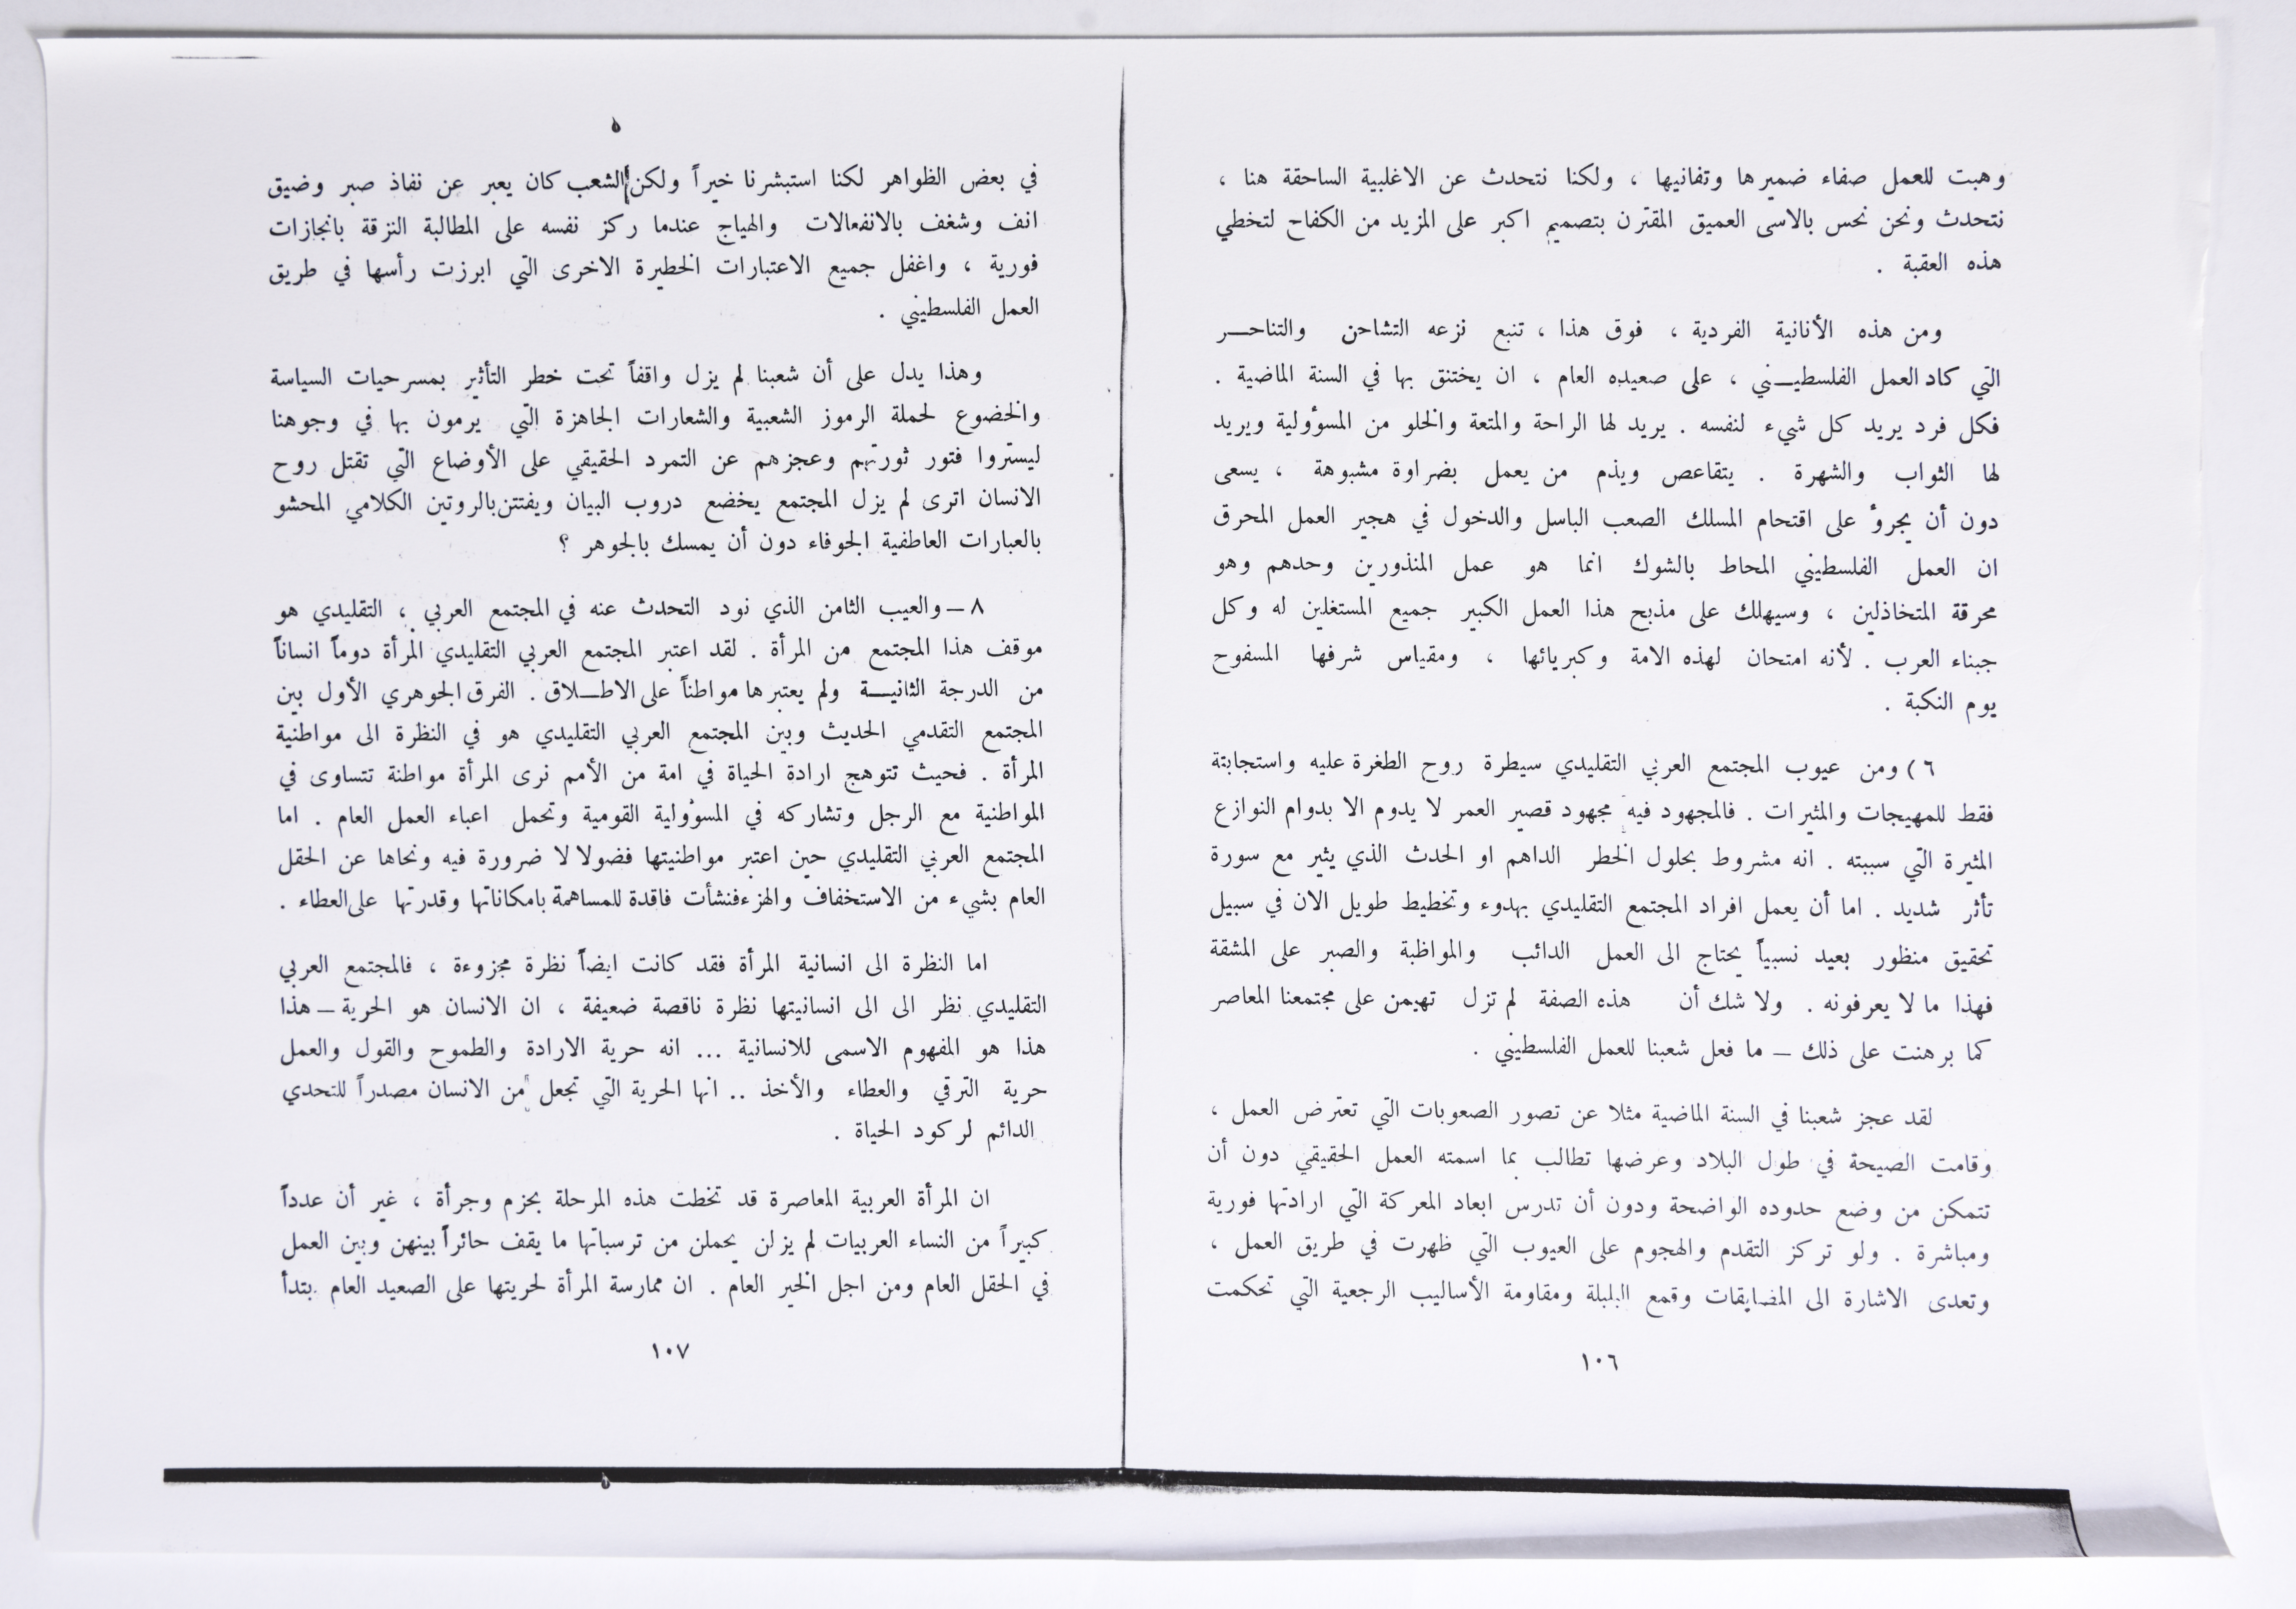 وهبت للعمل صفاء ضميرها وتفانيها ، ولكنا نتحدث عن الاغلبية الساحقة هنا ،
نتحدث ونحن نحس بالاسى العميق المقترن بتصميم اكبر على المزيد من الكفاح لتخطي
هذه العقبة .
ومن هذه الأنانية الفردية ، فوق هذا ، تنبع نزعه التشاحن والتناحـــر
التي كاد العمل الفلسطيـــني ، على صعيده العام ، ان يختنق بها في السنة الماضية .
فكل فرد يريد كل شيء لنفسه . يريد لها الراحة والمتعة والخلو من المسؤولية ويريد
لها الثواب والشهرة . يتقاعص ويذم من يعمل بضراوة مشبوهة ، يسعى
دون أن يجرؤ على اقتحام المسلك الصعب الباسل والدخول في هجير العمل المحرق
ان العمل الفلسطيني المحاط بالشوك انما هو عمل المنذورين وحدهم وهو
محرقة المتخاذلين ، وسيهلك على مذبح هذا العمل الكبير جميع المستغلين له وكل
جبناء العرب . لأنه امتحان لهذه الامة وكبريائها ، ومقياس شرفها المسفوح
يوم النكبة .
٦ ) ومن عيوب المجتمع العربي التقليدي سيطرة روح الطغرة عليه واستجابتة
فقط للمهيجات والمثيرات . فالمجهود فيه مجهود قصير العمر لا يدوم الا بدوام النوازع
المثيرة التي سببته . انه مشروط بحلول الخطر الداهم او الحدث الذي يثير مع سورة
تأثر شديد . اما أن يعمل افراد المجتمع التقليدي بهدوء وتخطيط طويل الان في سبيل
تحقيق منظور بعيد نسبياً يحتاج الى العمل الدائب والمواظبة والصبر على المشقة
فهذا ما لا يعرفونه . ولا شك أن هذه الصفة لم تزل تهيمن على مجتمعنا المعاصر
كما برهنت على ذلك – ما فعل شعبنا للعمل الفلسطيني .
لقد عجز شعبنا في السنة الماضية مثلا عن تصور الصعوبات التي تعترض العمل ،
وقامت الصيحة في طول البلاد وعرضها تطالب بما اسمته العمل الحقيقي دون أن
تتمكن من وضع حدوده الواضحة ودون أن تدرس ابعاد المعركة التي ارادتها فورية
ومباشرة . ولو تركز التقدم والهجوم على العيوب التي ظهرت في طريق العمل ،
وتعدى الاشارة الى المضايقات وقمع البلبلة ومقاومة الأساليب الرجعية التي تحكمت
١٠٦
في بعض الظواهر لكنا استبشرنا خيراً ولكن الشعب كان يعبر عن نفاذ صبر وضيق
انف وشغف بالانفعالات والهياج عندما ركز نفسه على المطالبة النزقة بانجازات
فورية ، واغفل جميع الاعتبارات الخطيرة الاخرى التي ابرزت رأسها في طريق
العمل الفلسطيني .
وهذا يدل على أن شعبنا لم يزل واقفاً تحت خطر التأثير بمسرحيات السياسة
والخضوع لحملة الرموز الشعبية والشعارات الجاهزة التي يرمون بها في وجوهنا
ليستروا فتور ثورتهم وعجزهم عن التمرد الحقيقي على الأوضاع التي تقتل روح
الانسان اترى لم يزل المجتمع يخضع دروب البيان ويفتتن بالروتين الكلامي المحشو
بالعبارات العاطفية الجوفاء دون أن يمسك بالجوهر ؟
٨ – والعيب الثامن الذي نود التحدث عنه في المجتمع العربي ، التقليدي هو
موقف هذا المجتمع من المرأة . لقد اعتبر المجتمع العربي التقليدي المرأة دوماً انساناً
من الدرجة الثانيـــة ولم يعتبرها مواطناً على الاطـــلاق . الفرق الجوهري الأول بين
المجتمع التقدمي الحديث وبين المجتمع العربي التقليدي هو في النظرة الى مواطنية
المرأة . فحيث تتوهج ارادة الحياة في امة من الأمم نرى المرأة مواطنة تتساوى في
المواطنية مع الرجل وتشاركه في المسؤولية القومية وتحمل اعباء العمل العام . اما
المجتمع العربي التقليدي حين اعتبر مواطنيتها فضولا لا ضرورة فيه ونحاها عن الحقل
العام بشيء من الاستخفاف والهزء فنشأت فاقدة للمساهمة بامكاناتها وقدرتها على العطاء .
اما النظرة الى انسانية المرأة فقد كانت ايضاً نظرة مجزوءة ، فالمجتمع العربي
التقليدي نظر الى الى انسانيتها نظرة ناقصة ضعيفة ، ان الانسان هو الحرية – هذا
هذا هو المفهوم الاسمى للانسانية ... انه حرية الارادة والطموح والقول والعمل
حرية الترقي والعطاء والأخذ .. انها الحرية التي تجعل من الانسان مصدراً للتحدي
الدائم لركود الحياة .
ان المرأة العربية المعاصرة قد تخطت هذه المرحلة بحزم وجرأة ، غير أن عدداً
كبيراً من النساء العربيات لم يزلن يحملن من ترسباتها ما يقف حائراً بينهن وبين العمل
في الحقل العام ومن اجل الخير العام . ان ممارسة المرأة لحريتها على الصعيد العام بتدأ
١٠٧